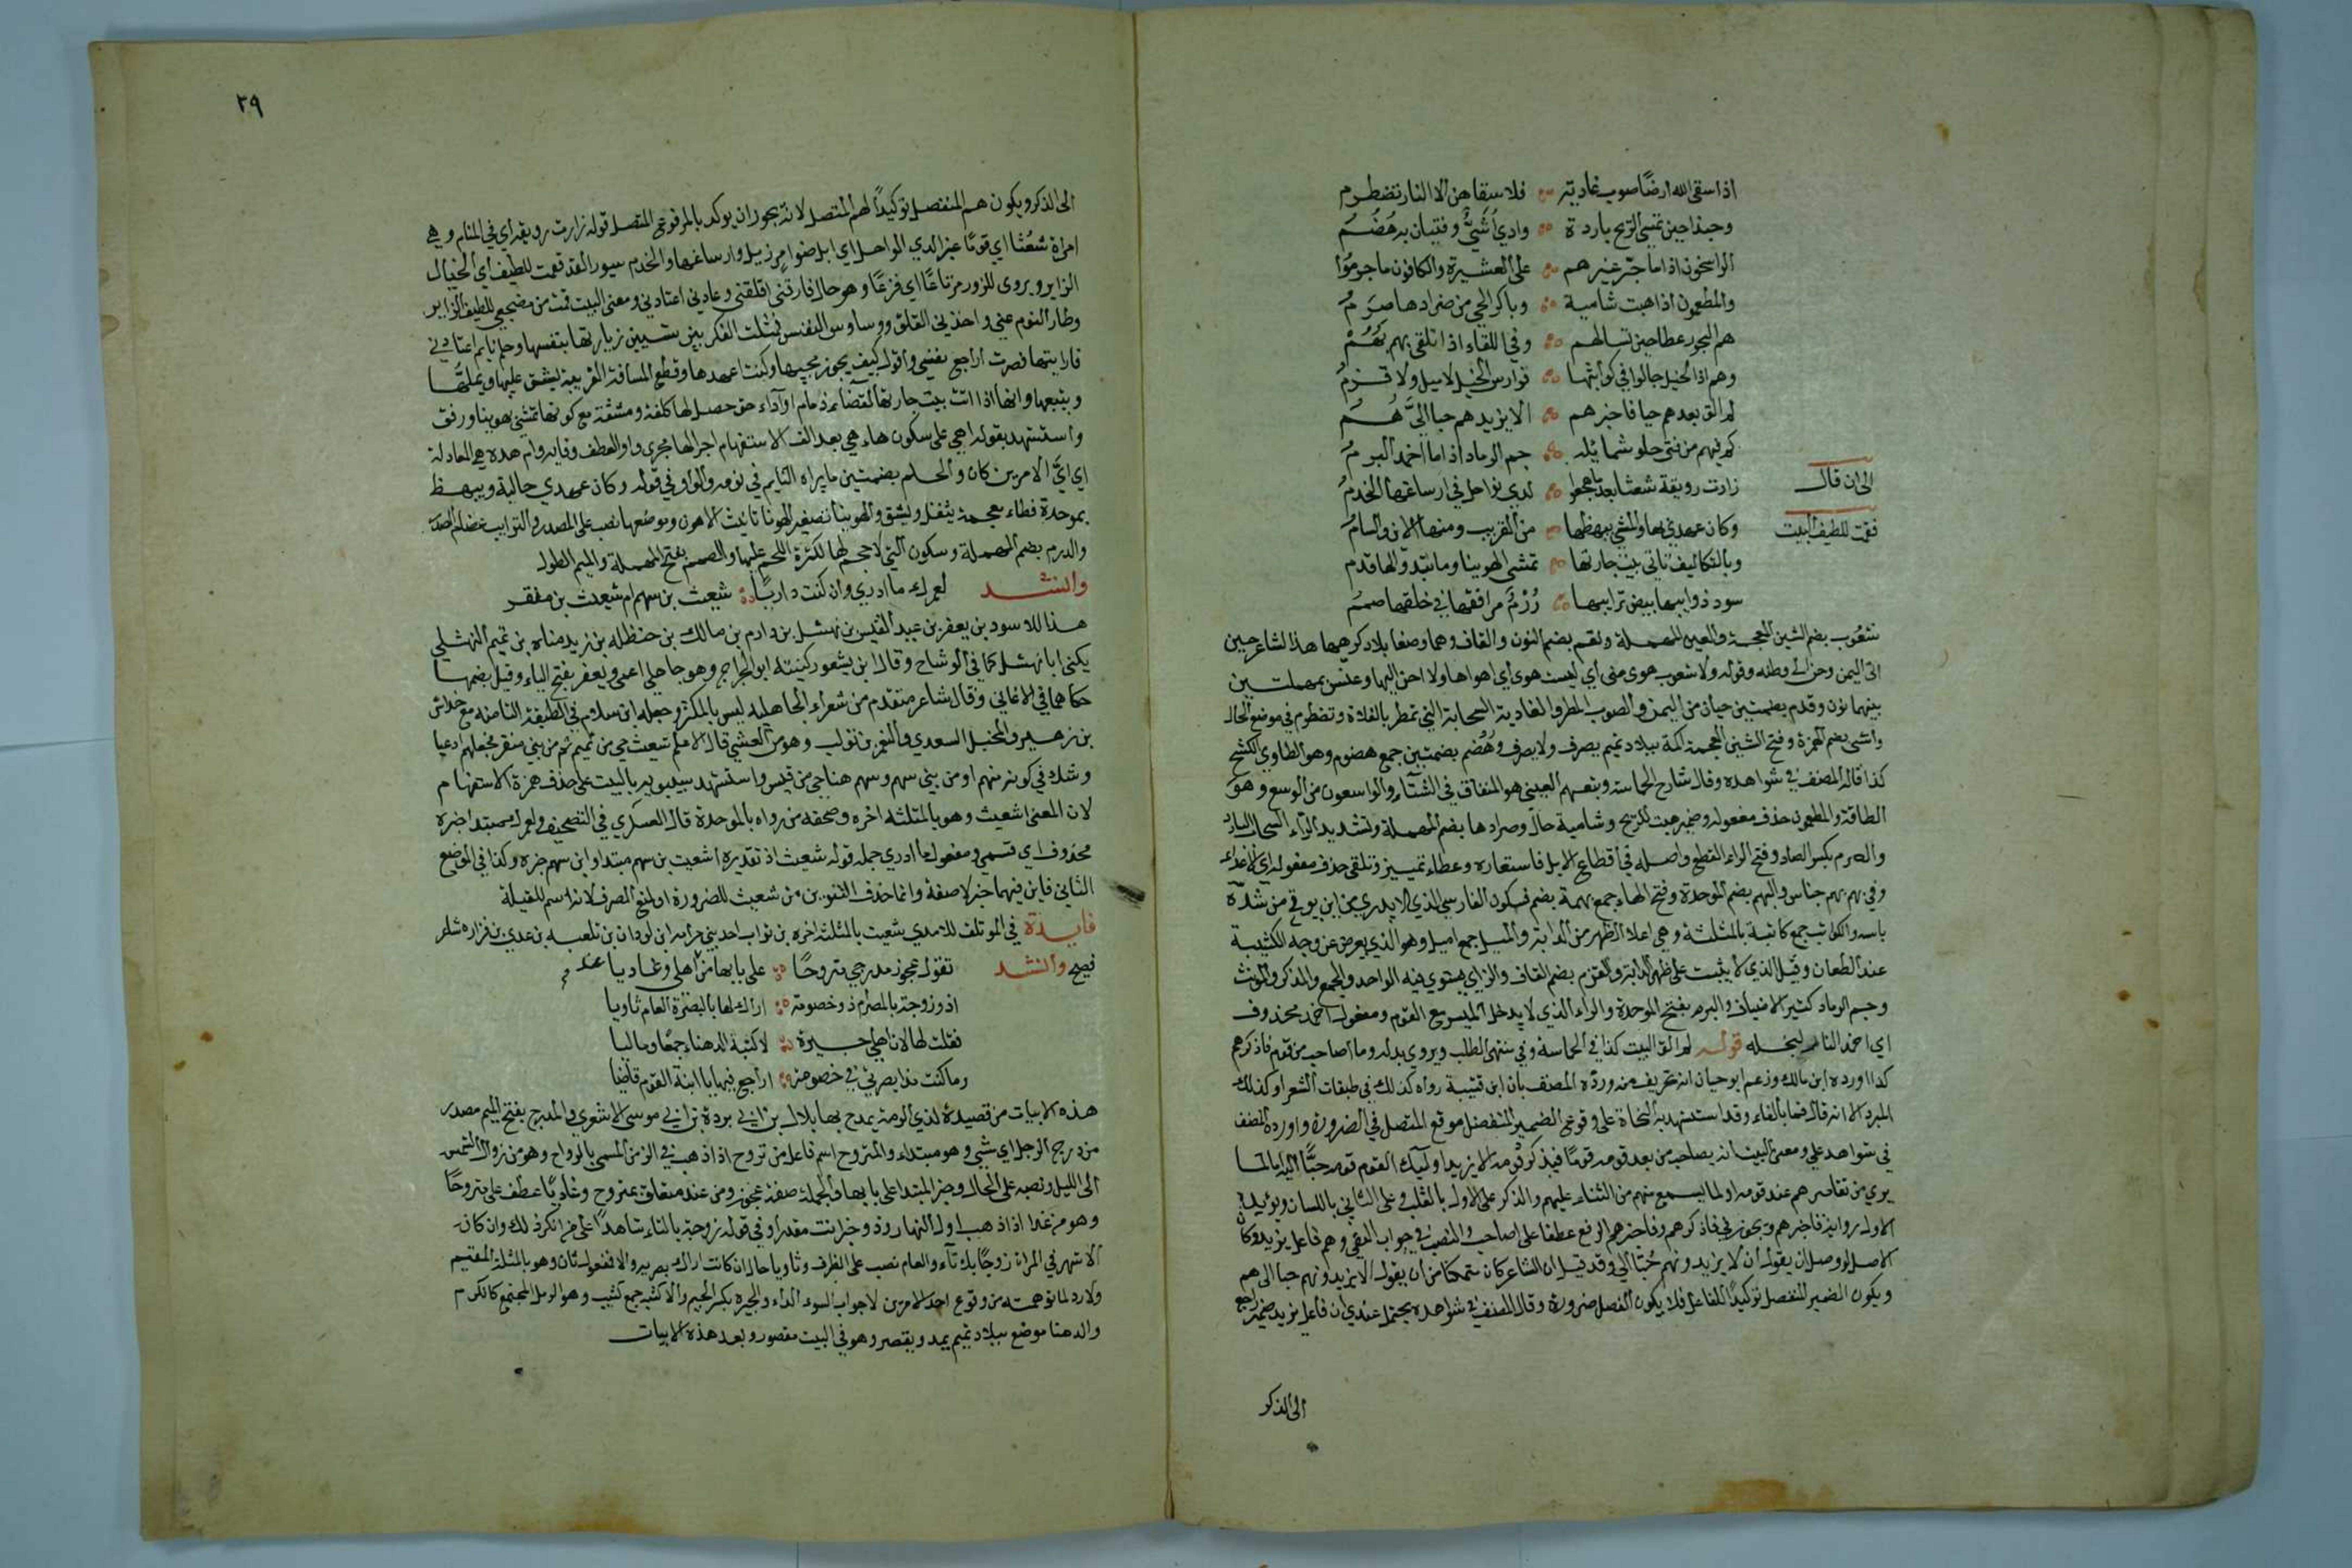 اذا سقى الله ارضا صوب غادية فلا سقاهن الا النار تضطرم
وحبذا حين تمسي الريح باردة وادي أشيّ وفتيان به هضم
الواسعون اذا ما جر غيرهم على العشيرة والكافون ما جرموا
والمطعمون اذا هبت شامية وباكر الحي من صرادها صرم
هم البحور عطا حين تسالهم وفي اللقاء اذا تلقى بهم بهم
وهم اذا الخيل جالوا في كواثبها فوارس الخيل لا ميل ولا قزم
لم الق بعدهم حيا فاخبرهم الا يزيدهم حبا اليّ هم
كم فيهم من فتى حلو شمائله جم الرماد اذا ما اخمد البرم
الى ان قال
زارت رويقة شعثا بعد ما هجعوا لدى نواحل في ارساغها الخدم
فقمت للطيف البيت
وكان عهدي بها والمشي يبهظها من القريب ومنها الاين والسام
وبالتكاليف تاتي بيت جارتها تمشي الهوينا وما تبدو لها قدم
سود ذوايبها بيض ترايبها درم مرافقها في خلقها صمم
شعوب بضم الشين المعجمة والعين المهملة ونقم بضم النون والقاف وهما وصفا بلاد كرههما هذا الشاعر حين
اتى اليمن وحن الى وطنه وقوله ولا شعوب هوى مني اي ليست هوى اي اهواها ولا احن اليها وعنس بمهملتين
بينهما نون وقدم بضمتين حيان من اليمن والصوب المطر والغادية السحابة التي تمطر بالغداة وتضطرم في موضع الحال
واشي بضم الهمزة وفتح الشين المعجمة اكمة ببلاد تميم يصرف ولا يصرف وهضم بضمتين جمع هضوم وهو الطاوي الكشح
كذا قاله المصنف في شواهده وقال شارح الحماسة وتبعهم العيني هو المنفاق في الشتاء والواسعون من الوسع وهو
الطاقة والمطعمون حذف مفعوله وضمير هبت للريح وشامية حال وصرادها بضم المهملة وتشديد الراء السحاب البارد
والصرم بكسر الصاد وفتح الراء القطع واصله في اقطاع الابل فاستعاره وعطاء تمييز وتلقى حذف مفعوله اي الاعداء
وفي بهم بهم جناس والبهم بضم الموحدة وفتح الهاء جمع بهمة بضم فسكون الفارس الذي لا يدرى من اين يوتى من شدة
باسه والكواثب جمع كاثبة بالمثلثة وهي اعلا الظهر من الدابة والميل جمع اميل وهو الذي يعرض عن وجه الكتيبة
عند الطعان وقيل الذي لا يثبت على ظهر الدابة والقزم بضم القاف والزاي يستوي فيه الواحد والجمع والمذكر والمونث
وجم الرماد كثير الاضياف والبرم بفتح الموحدة والراء الذي لا يدخل الميسر مع القوم ومفعول اخمد محذوف
اي اخمد النار لبخله قوله لم الق البيت كذا في الحماسة وفي منتهى الطلب ويروى بدله وما اصاحب من قوم فاذكرهم
كذا اورده ابن مالك وزعم ابو حيان انه تحريف منه ورده المصنف بان ابن قتيبة رواه كذلك في طبقات الشعرا وكذلك
المبرد الا انه قال فما بالفاء وقد استشهد به النحاة على وقوع الضمير المنفصل موقع المتصل في الضرورة واورده المصنف
في شواهد على ومعنى البيت انه يصاحب من بعد قومه قوما فيذكر قومه الا يزيد اوليك القوم قومه حبا اليه لما
يرى من تقاصرهم عند قومه او لما يسمع منهم من الثناء عليهم والذكر على الاول بالقلب وعلى الثاني باللسان ويؤيد
الاول رواية فاخبرهم ويجوز في فاذكرهم وفاخبرهم الرفع عطفا على اصاحب والنصب في جواب النفي وهم فاعل يزيد وكان
الاصل لو وصل ان يقول ان لا يزيدونهم حبا الي وقد قيل ان الشاعر كان متمكنا من ان يقول الا يزيدونهم حبا الى هم
ويكون الضمير المنفصل توكيدا للفاعل فلا يكون الفصل ضرورة وقال المصنف في شواهده يحتمل عندي ان فاعل يزيد ضمير راجع
الى الذكر
٢٩
الى الذكر ويكون هم المنفصل توكيدا لهم المتصل لانه يجوز ان يوكد بالمرفوع المتصل قوله زارت رويقة اي في المنام وهي
امراة شعثا اي قوما غبر الدي الواحل اي ابل ضوامر زيل وارساغها والخدم سيور القد فقمت للطيف اي الخيال
الزاير ويروى للزور مرتاعا اي فزعا وهو حال فارقني اقلقني وعادني اعتادني ومعنى البيت قمت من مضجعي للطيف الزاير
وطار النوم عني واخذني القلق ووساوس النفس فمثلت الفكر بين شيين زيارتها بنفسها وحلم نايم اعتادني
فارابتها فصرت اراجع نفسي واقول كيف يجوز مجيبها وكنت اعهدها وقطع المسافة القريبة يشق عليها ويملها
ويتبعها وانها اذا اتت بيت جارتها لقضا ذمام او اداء حق حصل لها كلفة ومشقة مع كونها تمشي بهوينا ورفق
واستشهد بقوله اهي على سكون هاء هي بعد الف الاستفهام اجرا لها مجرى واو العطف وفايه وام هده هي المعادلة
اي ايّ الامرين كان والحلم بضمتين ما يراه النايم في نومه والواو في قوله وكان عهدي حالية ويبهظ
بموحدة فظاء معجمة يثقل ويشق والهوينا تصغير الهونا تانيث الاهون وموضعها نصب على المصدر والترايب عظام الصدر
والدرم بضم المهملة وسكون التي لا حجم لها لكثرة اللحم عليها والصمم بفتح المهملة والميم الطول
وانشد لعمرك ما ادري وان كنت داريا شعيث بن سهم ام شعيث بن منقر
هذا للاسود بن يعفر بن عبد القيس بن نهشل بن دارم بن مالك بن حنظله بن زيد مناه بن تميم النهشلي
يكنى ابا نهشل كما في الوشاح وقال ابن يسعود كنيته ابو الجراح وهو جاهلي اعمى ويعفر بفتح الياء وقيل بضمها
حكاهما في الاغاني وقال شاعر متقدم من شعراء الجاهلية ليس بالمكثر وجعله ابن سلام في الطبقة الثامنة مع خداش
بن زهير والمخبل السعدي والنمر بن تولب وهو من العشي قال الاعلم شعيث حي من تميم ثم من بني منقر فجعلهم ادعيا
وشك في كونهم منهم او من بني سهم وسهم هنا حي من قيس واستشهد سيبويه بالبيت على حذف همزة الاستفهام
لان المعنى اشعيث وهو بالمثلثة اخره وصحفه من رواه بالموحدة قال العسكري في التصحيف ولعمرك مبتدا خبره
محذوف اي قسمي ومفعول ما ادري جملة قوله شعيث اذ تقديره اشعيث بن سهم مبتدا وابن سهم خبره وكذا في الموضع
الثاني فابن فيهما خبر لا صفة وانما حذف التنوين من شعيث للضرورة او لمنع الصرف لانه اسم للقبيلة
فايدة في الموتلف للامدي شعيث بالمثلثة اخره بن نواب احد بني حرام ابن لوذان بن ثعلبه بن عدي بن فزاره شاعر
فصيح وانشد تقول عجوز مدرجي متروحا على بابها من اهلي وغاديا عند
اذو زوجة بالمصر ام ذو خصومة اراك لها بالبصرة العام ثاويا
فقلت لها لا ان اهلي جيرة لاكثبة الدهناء جمعا وماليا
وما كنت مذ ابصرتني في خصومة اراجع فيها يا ابنة القوم قاضيا
هذه الابيات من قصيدة لذي الرمة يمدح بها بلال بن ابي بردة بن ابي موسى الاشعري والمدرج بفتح الميم مصدر
من درج الرجل اي مشى وهو مبتداء والمتروح اسم فاعل من تروح اذا ذهب في الزمن المسمى بالرواح وهو من زوال الشمس
الى الليل ونصبه على الحال وخبر المبتدا على بابها والجملة صفة عجوز ومن عند متعلق بمتروح وغاديا عطف على متروحا
وهو من غدا اذا ذهب اول النهار وذو خبر انت مقدرا وفي قوله زوجة بالتاء شاهد على من انكر ذلك وان كان
الاشهر في المراة زوجا بلا تاء والعام نصب على الظرف وثاويا حال ان كانت اراك بصريه والا فمفعول ثان وهو بالمثلثة المقيم
ولا رد لما توهمته من وقوع احد الامرين لا جواب السوء الداء والجيرة بكسر الجيم والاكثبة جمع كثيب وهو الرمل المجتمع كالكوم
والدهنا موضع ببلاد تميم يمد ويقصر وهو في البيت مقصور وبعد هذه الابيات